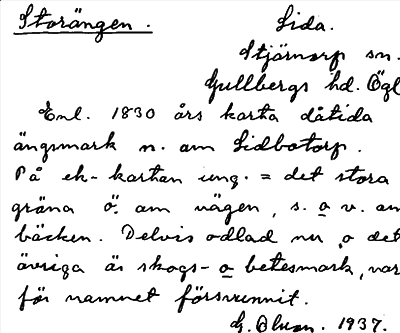 Storängen. Lida.
Stjärnorp sn.
Gullbergs hd. Ögl
Enl. 1830 års karta dåtida
ängsmark n. om Lidbotorp.
På ek-kartan ung. = det stora
gröna ö. om vägen, s. o v. om
bäcken. Delvis odlad nu, o det
övriga är skogs- o betesmark, var
för namnet försvunnit.
G. Olson. 1937.